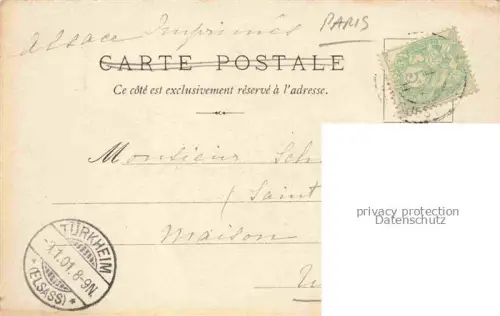 Alsace Imprimés PARIS
CARTE POSTALE
Ce côté est exclusivement réservé à l'adresse.
Monsieur Sch
(Saint
Maison
privacy protection
Datenschutz
TÜRKHEIM
1.01.8-9N.
* (ELSASS) *